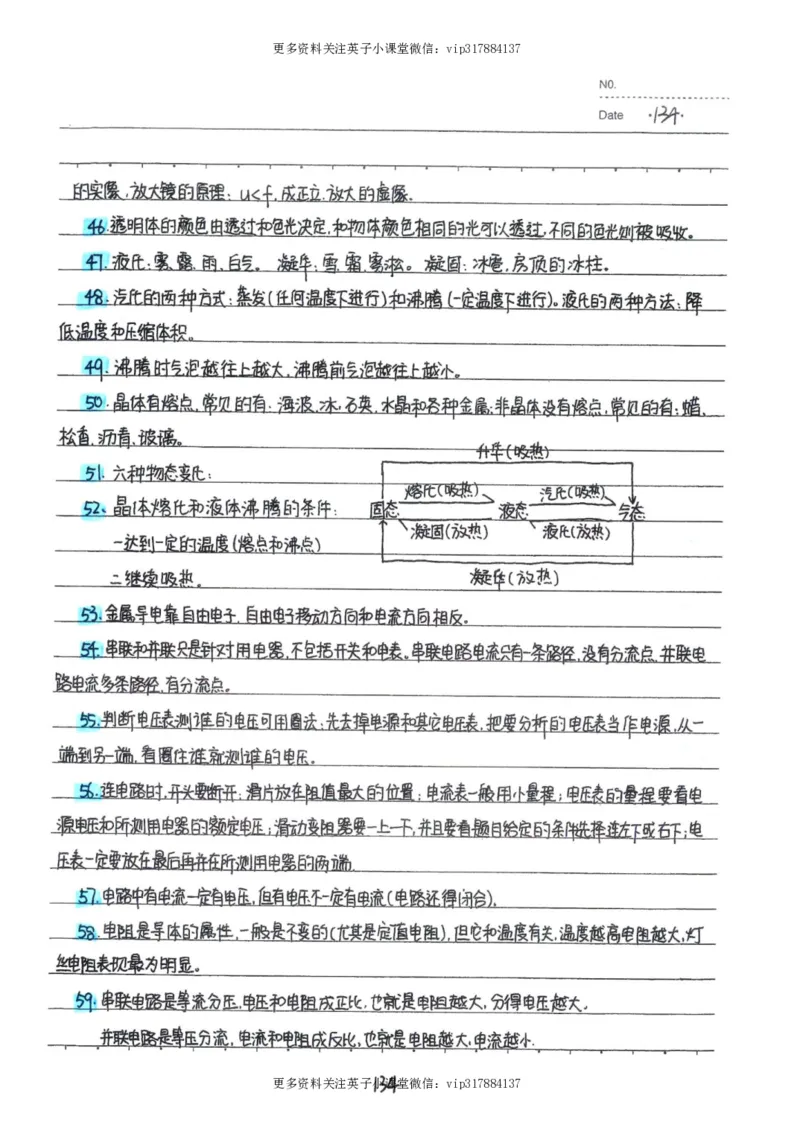 更多资料关注英子小课堂微信：vip317884137
NO.
Date ·134·
的实像,放大镜的原理：u<f,成正立.放大的虚像.
46.透明体的颜色由透过和色光决定,和物体颜色相同的光可以透过,不同的色光则被吸收。
47.液化：雾、露、雨、白气。凝华：雪、霜、雾凇。凝固：冰雹,房顶的冰柱。
48.汽化的两种方式：蒸发(任何温度下进行)和沸腾(一定温度下进行)。液化的两种方法：降
低温度和压缩体积。
49.沸腾时气泡越往上越大,沸腾前气泡越往上越小。
50.晶体有熔点,常见的有：海波,冰,石英,水晶和各种金属;非晶体没有熔点,常见的有：蜡、
松香,沥青、玻璃。
升华(吸热)
51.六种物态变化：
熔化(吸热) 汽化(吸热)
52、晶体熔化和液体沸腾的条件： 固态 液态 气态
一达到一定的温度(熔点和沸点) 凝固(放热) 液化(放热)
二继续吸热。 凝华(放热)
53.金属导电靠自由电子,自由电子移动方向和电流方向相反。
54.串联和并联只是针对用电器,不包括开关和电表。串联电路电流只有一条路径,没有分流点.并联电
路电流多条路径,有分流点。
55.判断电压表测谁的电压可用圈法：先去掉电源和其它电压表,把要分析的电压表当作电源,从一
端到另一端,看圈住谁就测谁的电压。
56.连电路时,开关要断开；滑片放在阻值最大的位置；电流表一般用小量程；电压表的量程要看电
源电压和所测用电器的额定电压；滑动变阻器要一上一下,并且要看题目给定的条件先择连左下或右下；电
压表一定要放在最后再并在所测用电器的两端.
57.电路中有电流一定有电压,但有电压不一定有电流(电路还得闭合).
58.电阻是导体的属性,一般是不变的(尤其是定值电阻),但它和温度有关,温度越高电阻越大,灯
丝电阻表现最为明显。
59.串联电路是等流分压,电压和电阻成正比,也就是电阻越大,分得电压越大,
并联电路是等压分流,电流和电阻成反比,也就是电阻越大,电流越小.
更多资料关注英子小课堂微信：vip317884137
134